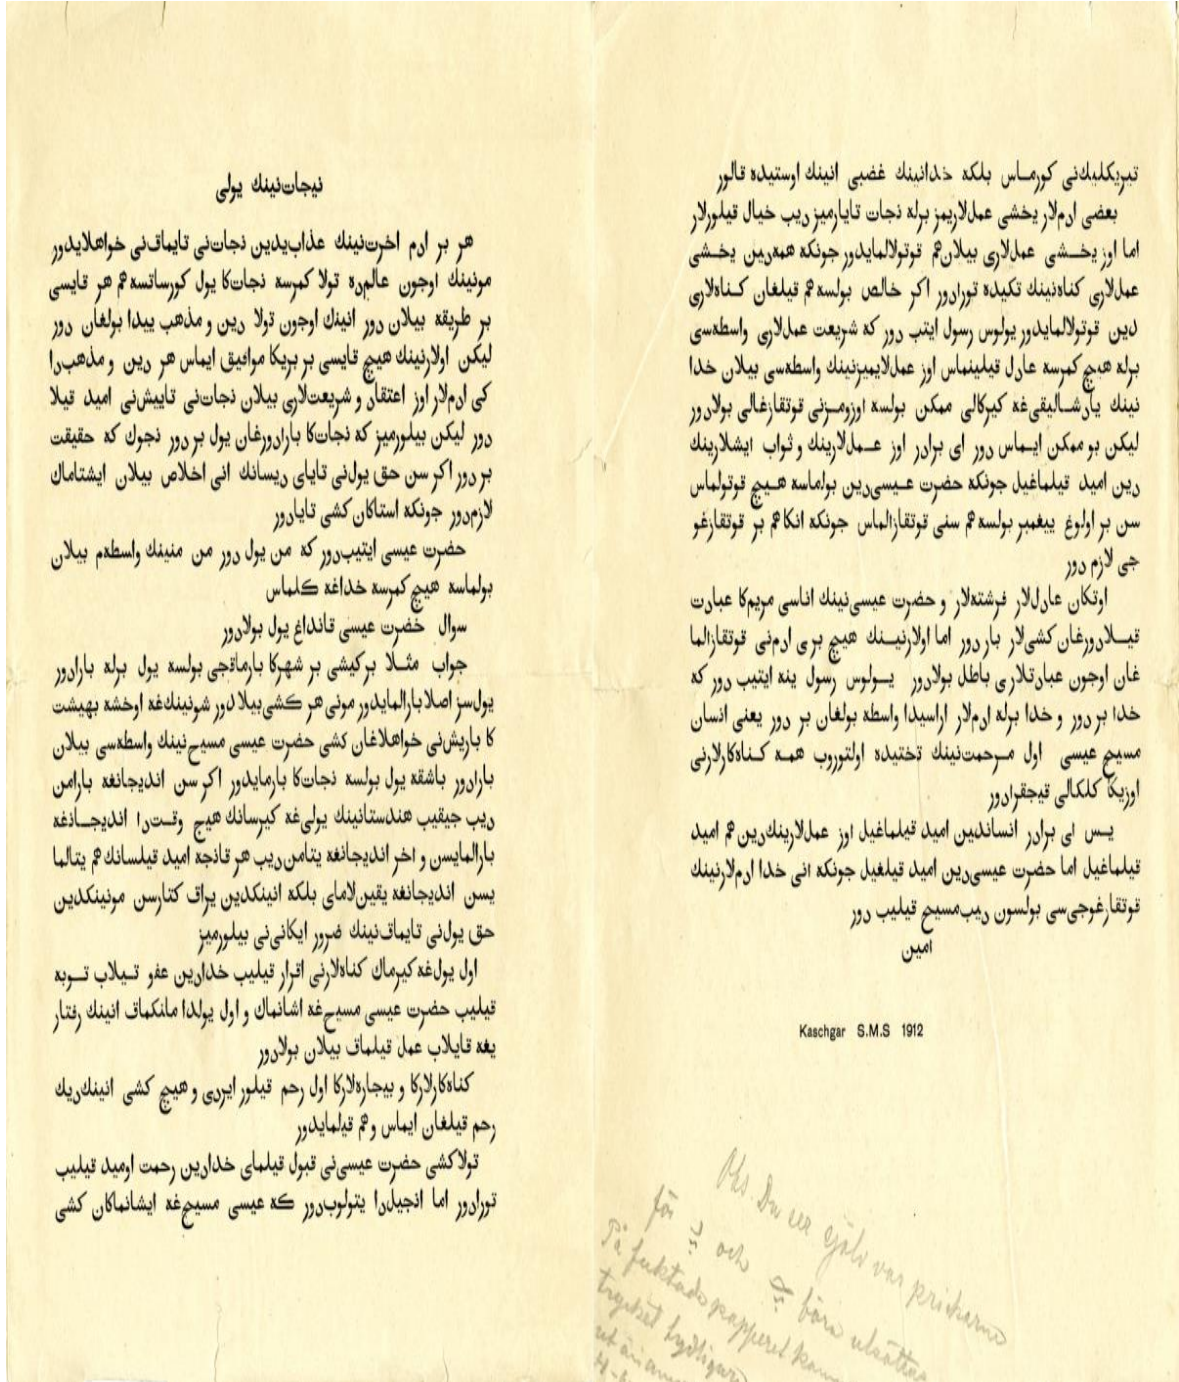 نیجات‌نینك یولی
هر بر ادم اخرت‌نینك عذاب‌یدین نجات‌نی تاپماق‌نی خواهلایدور
مونینك اوچون عالم‌ده تولا كمرسه نجات‌كا یول كورساتسه‌هم هر قایسی
بر طریقه بیلان دور انینك اوچون تولا دین و مذهب پیدا بولغان دور
لیكن اولارنینك هیچ قایسی بر بریكا موافیق ایماس هر دین و مذهب‌دا
كی ادم‌لار اوز اعتقاد و شریعت‌لاری بیلان نجات‌نی تاپیش‌نی امید قیلا
دور لیكن بیلورمیز كه نجات‌كا بارادورغان یول بر دور نچوك كه حقیقت
بر دور اكر سن حق یول‌نی تاپای دیسانك انی اخلاص بیلان ایشتاماك
لازم‌دور چونكه استاكان كشی تاپادور
حضرت عیسی ایتیب‌دور كه من یول دور من منینك واسطه‌م بیلان
بولماسه هیچ كمرسه خداغه كلماس
سوال حضرت عیسی قانداغ یول بولادور
جواب مثلا بر كیشی بر شهركا بارماقچی بولسه یول برله بارادور
یول‌سز اصلا بارالمایدور مونی هر كشی بیلادور شونینك‌غه اوخشه بهیشت
كا باریش‌نی خواهلاغان كشی حضرت عیسی مسیح‌نینك واسطه‌سی بیلان
بارادور باشقه یول بولسه نجات‌كا بارمایدور اكر سن اندیجانغه بارامن
دیب چیقیب هندستانینك یولی‌غه كیرسانك هیچ وقت‌دا اندیجانغه
بارالمایسن و اخر اندیجانغه یتامن دیب هر قانچه امید قیلسانك هم یتالما
یسن اندیجانغه یقین‌لامای بلكه انینكدین یراق كتارسن مونینكدین
حق یول‌نی تاپماق‌نینك ضرور ایكانی‌نی بیلورمیز
اول یول‌غه كیرماك كناه‌لارنی اقرار قیلیب خدادین عفو تیلاب توبه
قیلیب حضرت عیسی مسیح‌غه اشانماك و اول یولدا مانكماق انینك رفتار
یغه قاپلاب عمل قیلماق بیلان بولادور
كناه‌كارلاركا و بیچاره‌لاركا اول رحم قیلور ایردی و هیچ كشی انینك‌دیك
رحم قیلغان ایماس و هم قیلمایدور
تولا كشی حضرت عیسی‌نی قبول قیلمای خدادین رحمت اومید قیلیب
تورادور اما انجیل‌دا پتولوب‌دور كه عیسی مسیح‌غه ایشانماكان كشی
تیریكلیك‌نی كورماس بلكه خدانینك غضبی انینك اوستیده قالور
بعضی ادم‌لار یخشی عمل‌لاریمز برله نجات تاپارمیز دیب خیال قیلورلار
اما اوز یخشی عمل‌لاری بیلان‌هم قوتولالمایدور چونكه همه‌دین یخشی
عمل‌لاری كناه‌نینك تكیده تورادور اكر خالص بولسه‌هم قیلغان كناه‌لاری
دین قوتولالمایدور پولوس رسول ایتب دور كه شریعت عمل‌لاری واسطه‌سی
برله هیچ كمرسه عادل قیلینماس اوز عمل‌لایمیزنینك واسطه‌سی بیلان خدا
نینك پادشالیقی‌غه كیركالی ممكن بولسه اوزومزنی قوتقازغالی بولادور
لیكن بو ممكن ایماس دور ای برادر اوز عمل‌لارینك و ثواب ایشلارینك
دین امید قیلماغیل چونكه حضرت عیسی‌دین بولماسه هیچ قوتولماس
سن بر اولوغ پیغمبر بولسه هم سنی قوتقازالماس چونكه انكاهم بر قوتقازغو
چی لازم دور
اوتكان عادل‌لار فرشته‌لار و حضرت عیسی‌نینك اناسی مریم‌كا عبادت
قیلادورغان كشی‌لار بار دور اما اولارنینك هیچ بری ادم‌نی قوتقازالما
غان اوچون عبادتلاری باطل بولادور پولوس رسول ینه ایتیب دور كه
خدا بر دور و خدا برله ادم‌لار اراسیدا واسطه بولغان بر دور یعنی انسان
مسیح عیسی اول مرحمت‌نینك تختیده اولتوروب همه كناه‌كارلارنی
اوزیكا كلكالی قیچقرادور
پس ای برادر انساندین امید قیلماغیل اوز عمل‌لارینك‌دین هم امید
قیلماغیل اما حضرت عیسی‌دین امید قیلغیل چونكه انی خدا ادم‌لارنینك
قوتقازغوچی‌سی بولسون دیب مسیح قیلیب دور
امین
Kaschgar S.M.S 1912
Obs. Du ser själv var prickarna
för پ och چ böra utsättas
På fuktade papperet kom
trycket tydligare